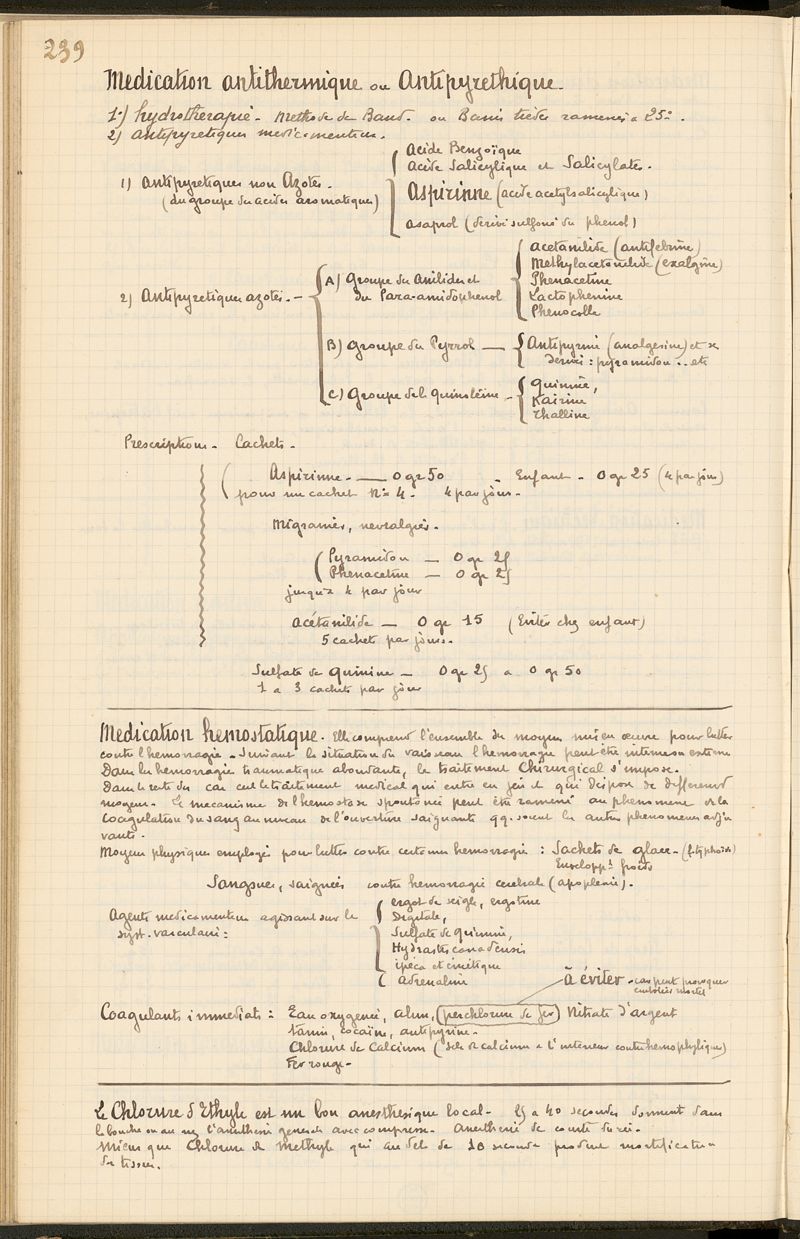 239
Medication antithermique ou Antipyrethique.
1°) hydrotherapie. Methode de Band. ou Bains tièdes ramenés a 25°.
2) antipyretiques medicamenteux.
Acide Benzoïque
Acide Salicylique et Salicylates.
1) Antipyretiques non Azotés.
(du groupe des acides aromatiques)
Aspirinne (acide acetylsalicylique)
asaprol (derivé sulfoné du phenol)
2) Antipyretiques azotés. —
A) Groupe des Anilides et
du Para-amidophenol
acetanilide (antifebrine)
Methylacetanilide (exalgine)
Phenacetine
Lactophenine
Phenocolle
B) Groupe du Pyrrol —
Antipyrine (analgesine) et se
derivés : pyramidon .. etc
C) Groupe de la quinoleine -
Quinine,
Kairine
Thalline
Prescriptions. Cachets.
Aspirinne. — 0 gr 50 . Enfant. 0 gr 25 (4 par jour)
pour un cachet N° 4. 4 par jour.
Migraines, nevralgies.
Pyramidon — 0 gr 25
Phenacetine — 0 gr 25
jusqu'a 4 par jour
Acétanilide — 0 gr 15 (Eviter chez enfant)
5 cachets par jours.
Sulfate de quinine — 0 gr 25 a 0 gr 50
1 a 3 cachets par jour
Medication hemostatique. Elle comprend l'ensemble des moyens mis en œuvre pour lutter
contre l'hemorragie. Suivant la situation du vaisseau l'hemorragie peut être interne ou externe
Dans les hemorragies traumatiques abondantes, le traitement Chirurgical s'impose.
Dans le reste des cas c'est le traitement medical qui entre en jeu et qui dispose de differents
moyens. Le mecanisme de l'hemostase spontanée peut être ramené au phenomene de la
coagulation du sang au niveau de l'ouverture saignante qq. soient les autres phenomenes adju
vants.
Moyens physiques employés pour lutter contre certaines hemorragies : Sachets de glace. (f. typhoïde)
Envelopp.ts froids
Sangsues, saignées contre hemorragie cerebrale (apoplexie).
Agents medicamenteux agissant sur le
syst. vasculaire :
ergot de seigle, ergotine
Digitale,
Sulfate de quinine,
Hydrastis canadensis
ipéca et émétique
adrenaline
à éviter. car peut provoquer
embolies mortel
Coagulants immediats : Eau oxygenée, alun, (perchlorure de fer) Nitrate d'argent
tanin, cocaïne, antipyrine.
Chlorure de Calcium (sels de calcium a l'interieur contre hemophylique)
Fer rouge.
Le Chlorure d'Ethyle est un bon anesthesique local. 25 a 40 secondes donnent dans
la bouche ou au nez l'anesthesie generale avec compresse. Anesthesie de courte durée.
Mieux que Chlorure de methyle qui au delà de 10 secondes produit mortification
des tissus.